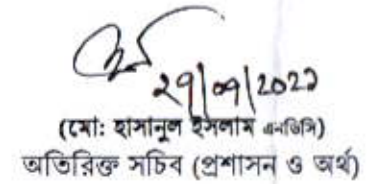 ২৭/০৭/2022
(মো: হাসানুল ইসলাম এনডিসি)
অতিরিক্ত সচিব (প্রশাসন ও অর্থ)